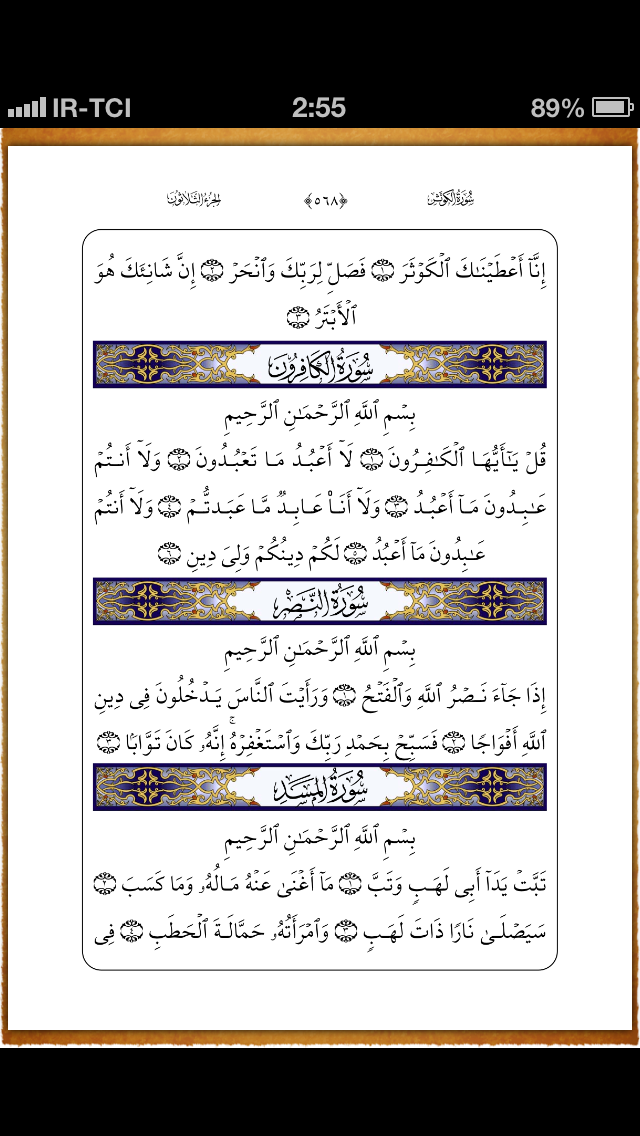 IR-TCI 2:55 89%
سُورَةُ الكَوْثَر ﴿٥٦٨﴾ الجزءُ الثَّلَاثُونَ
إِنَّآ أَعْطَيْنَٰكَ ٱلْكَوْثَرَ ١ فَصَلِّ لِرَبِّكَ وَٱنْحَرْ ٢ إِنَّ شَانِئَكَ هُوَ
ٱلْأَبْتَرُ ٣
سُورَةُ الكَافِرُون
بِسْمِ ٱللَّهِ ٱلرَّحْمَٰنِ ٱلرَّحِيمِ
قُلْ يَٰٓأَيُّهَا ٱلْكَٰفِرُونَ ١ لَآ أَعْبُدُ مَا تَعْبُدُونَ ٢ وَلَآ أَنتُمْ
عَٰبِدُونَ مَآ أَعْبُدُ ٣ وَلَآ أَنَا۠ عَابِدٌ مَّا عَبَدتُّمْ ٤ وَلَآ أَنتُمْ
عَٰبِدُونَ مَآ أَعْبُدُ ٥ لَكُمْ دِينُكُمْ وَلِىَ دِينِ ٦
سُورَةُ النَّصْرِ
بِسْمِ ٱللَّهِ ٱلرَّحْمَٰنِ ٱلرَّحِيمِ
إِذَا جَآءَ نَصْرُ ٱللَّهِ وَٱلْفَتْحُ ١ وَرَأَيْتَ ٱلنَّاسَ يَدْخُلُونَ فِى دِينِ
ٱللَّهِ أَفْوَاجًا ٢ فَسَبِّحْ بِحَمْدِ رَبِّكَ وَٱسْتَغْفِرْهُ ۚ إِنَّهُۥ كَانَ تَوَّابًۢا ٣
سُورَةُ المَسَدِ
بِسْمِ ٱللَّهِ ٱلرَّحْمَٰنِ ٱلرَّحِيمِ
تَبَّتْ يَدَآ أَبِى لَهَبٍ وَتَبَّ ١ مَآ أَغْنَىٰ عَنْهُ مَالُهُۥ وَمَا كَسَبَ ٢
سَيَصْلَىٰ نَارًا ذَاتَ لَهَبٍ ٣ وَٱمْرَأَتُهُۥ حَمَّالَةَ ٱلْحَطَبِ ٤ فِى